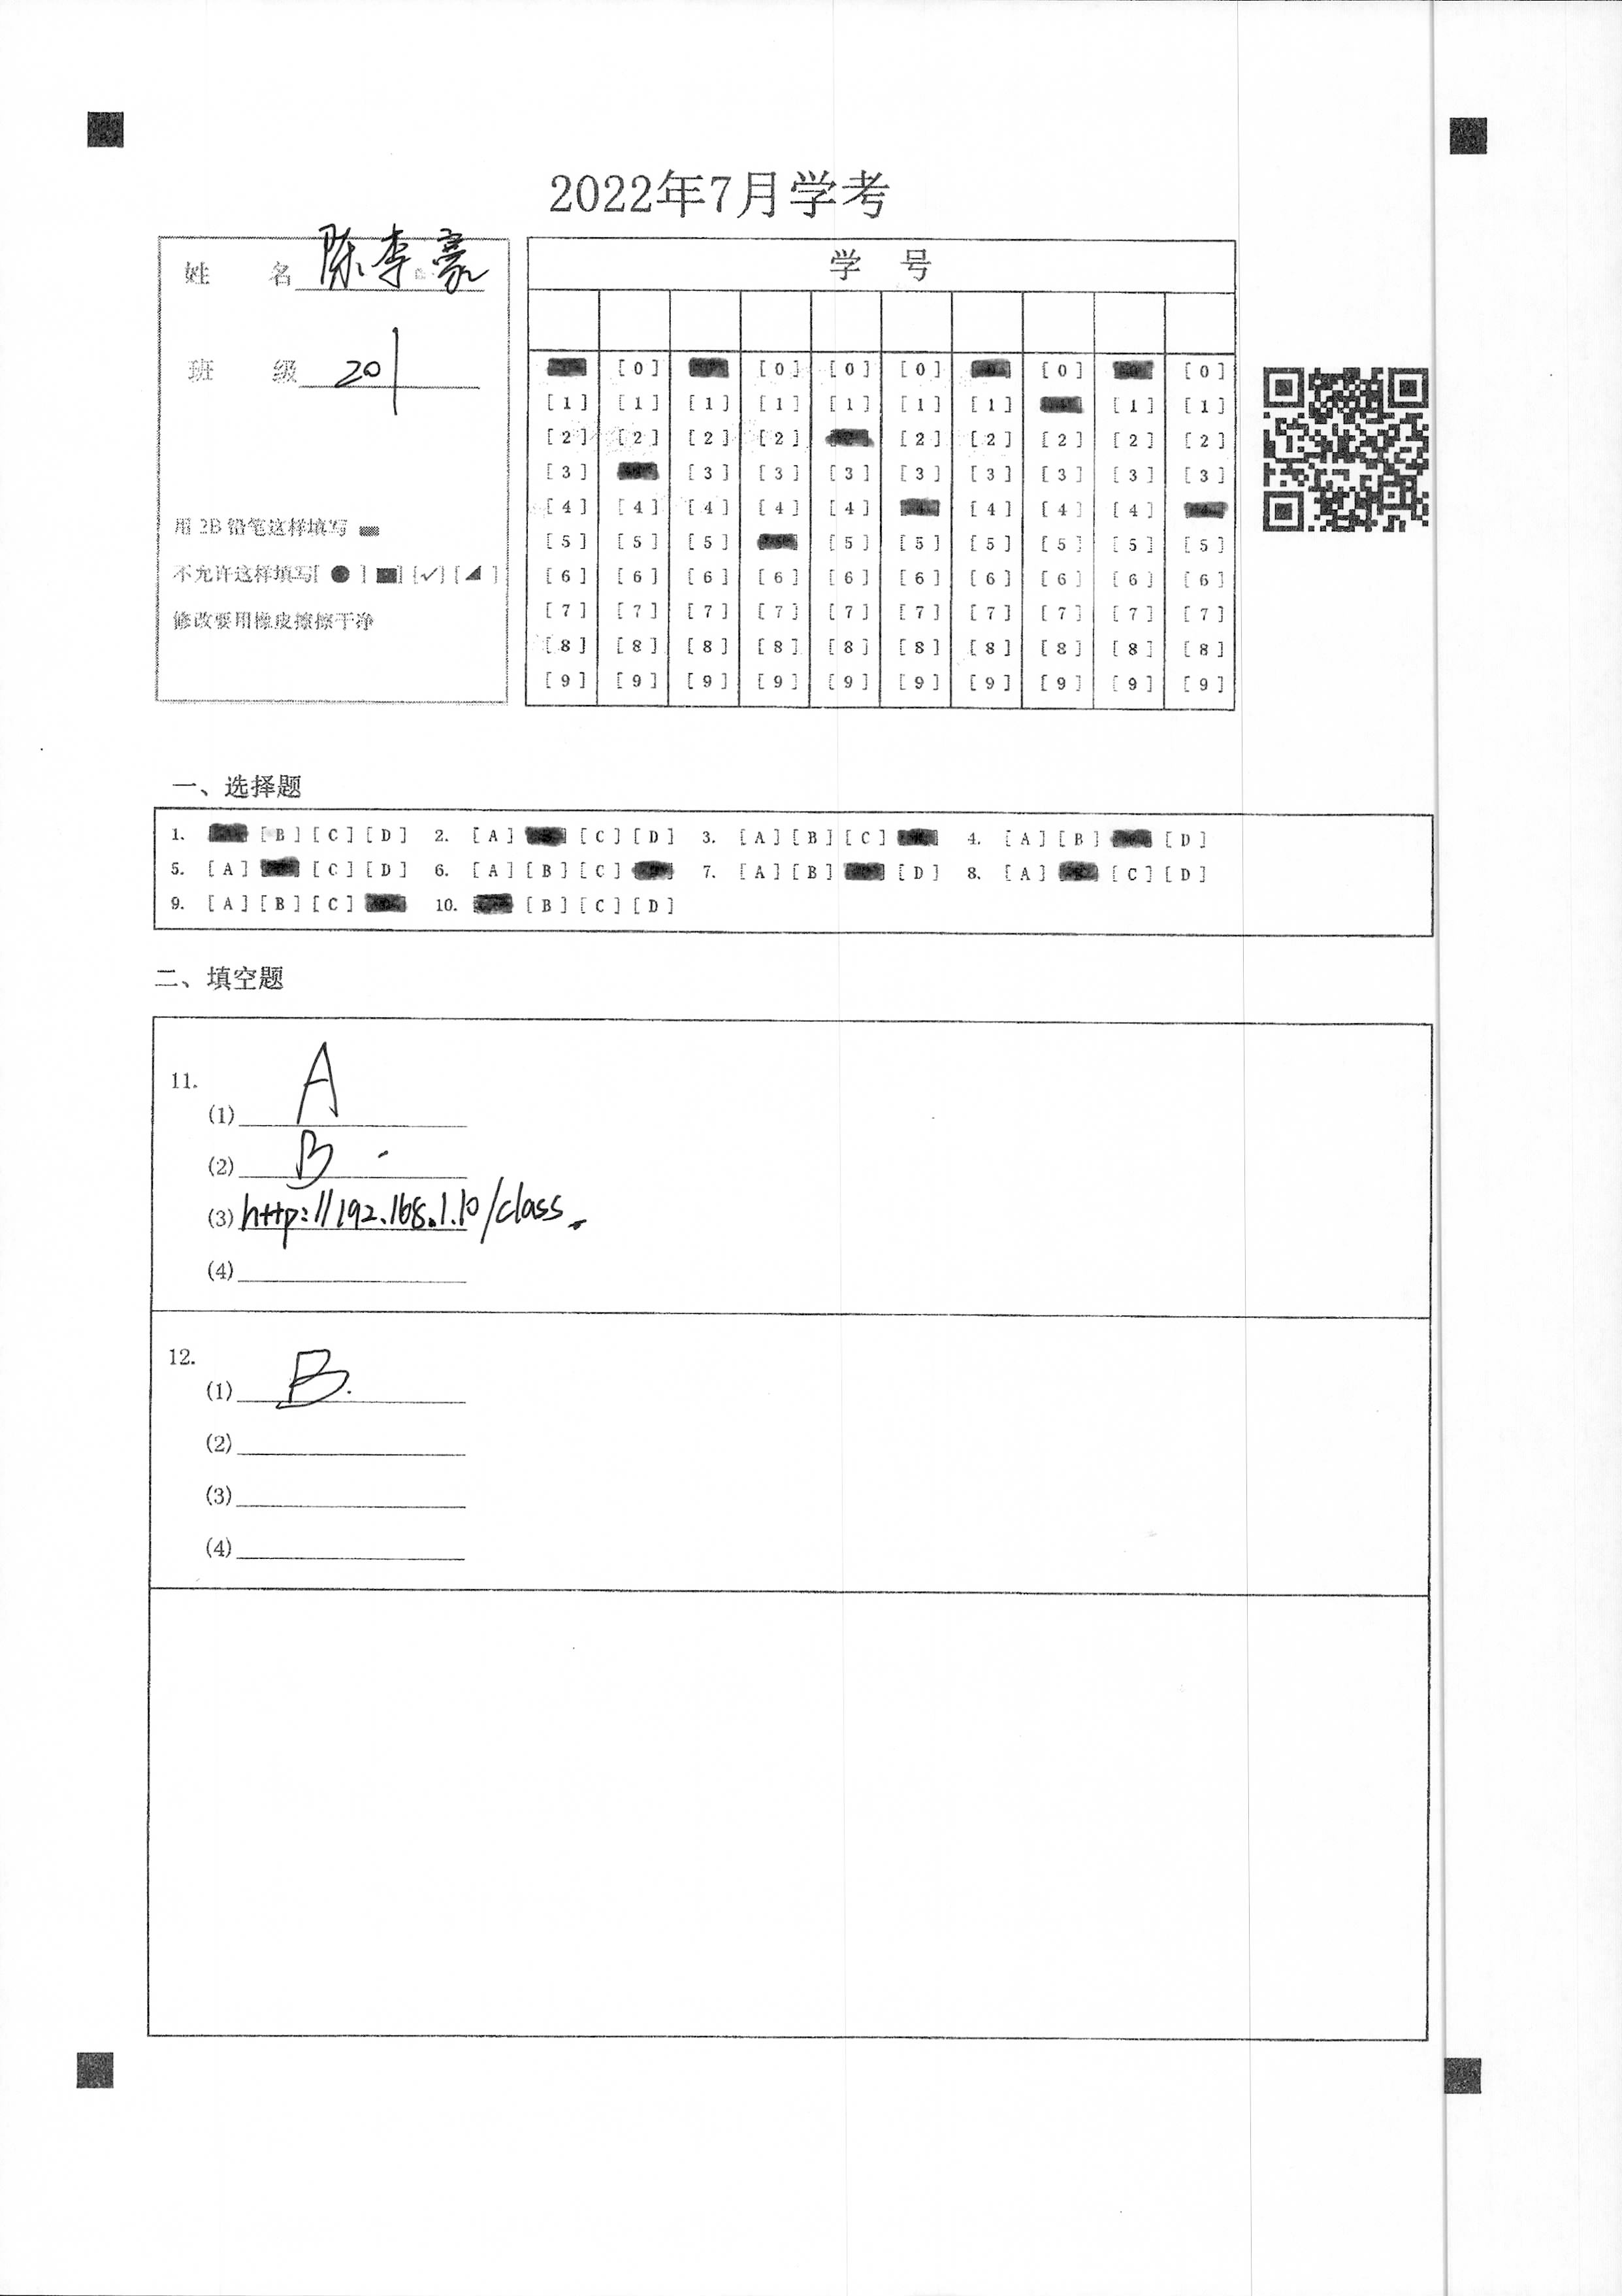 2022年7月学考
姓 名 陈李豪
班 级 201
用 2B 铅笔这样填写
不允许这样填写[ ● ] [■] [✓] [◢ ]
修改要用橡皮擦擦干净
学 号
[0] [0] [0] [0] [0] [0]
[1] [1] [1] [1] [1] [1] [1] [1] [1]
[2] [2] [2] [2] [2] [2] [2] [2] [2]
[3] [3] [3] [3] [3] [3] [3] [3] [3]
[4] [4] [4] [4] [4] [4] [4] [4]
[5] [5] [5] [5] [5] [5] [5] [5] [5]
[6] [6] [6] [6] [6] [6] [6] [6] [6] [6]
[7] [7] [7] [7] [7] [7] [7] [7] [7] [7]
[8] [8] [8] [8] [8] [8] [8] [8] [8] [8]
[9] [9] [9] [9] [9] [9] [9] [9] [9] [9]
一、选择题
1. [B] [C] [D] 2. [A] [C] [D] 3. [A] [B] [C] 4. [A] [B] [D]
5. [A] [C] [D] 6. [A] [B] [C] 7. [A] [B] [D] 8. [A] [C] [D]
9. [A] [B] [C] 10. [B] [C] [D]
二、填空题
11.
(1) A
(2) B
(3) http://192.168.1.10/class
(4)
12.
(1) B.
(2)
(3)
(4)